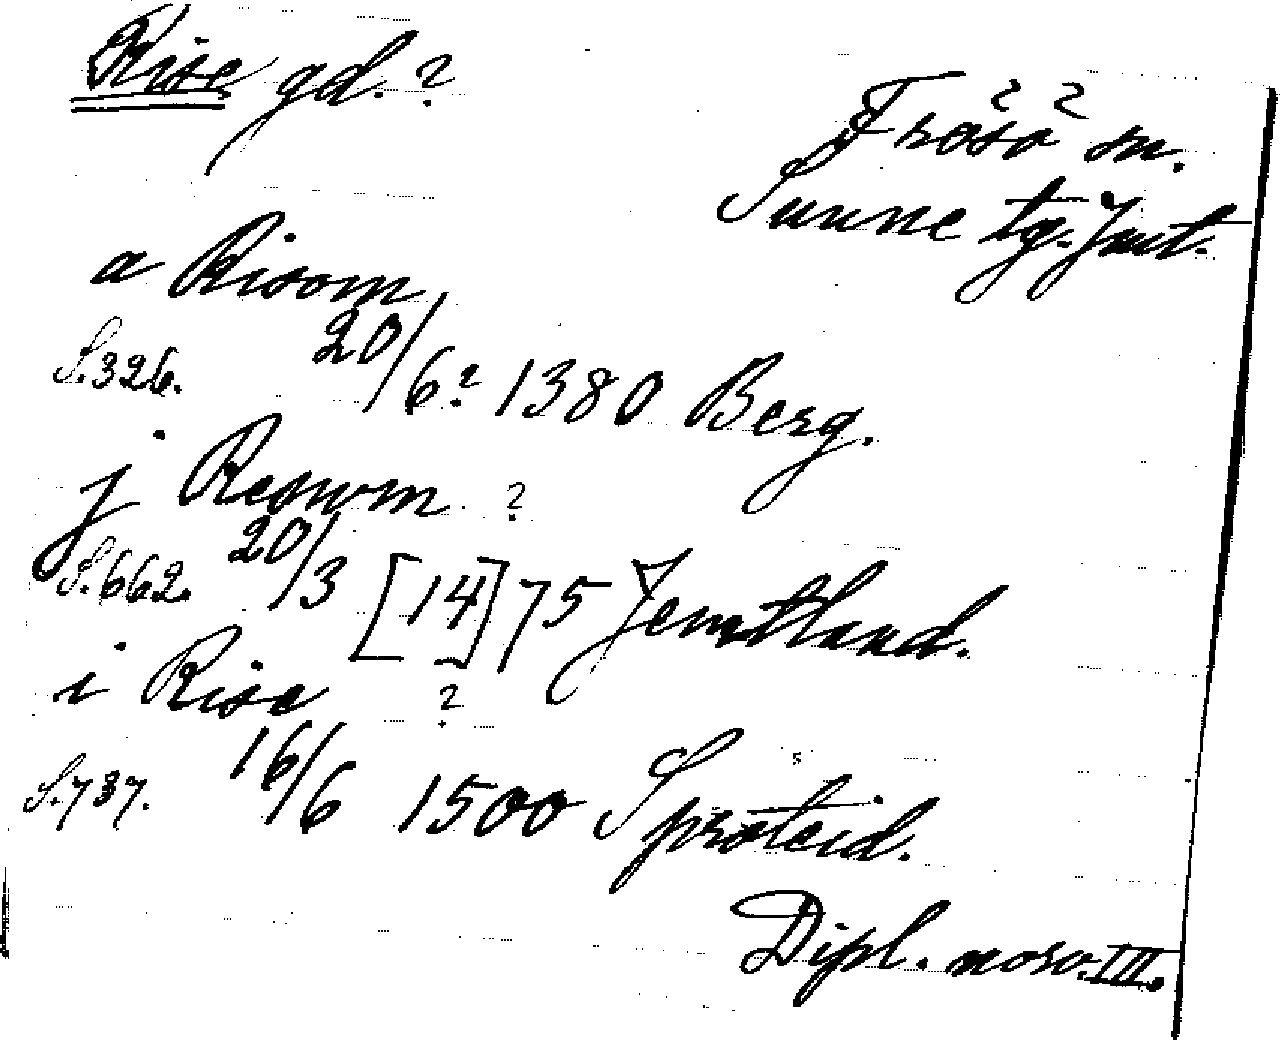 Rise gd.?
Frösö sn.
Sunne tg. Jmt.
a Risom
S. 326. 20/6? 1380 Berg.
j Reswm ?
S. 662. 20/3 [14]75 Jemtland.
i Rise ?
S. 737. 16/6 1500 Sproteid.
Dipl. norv. III.